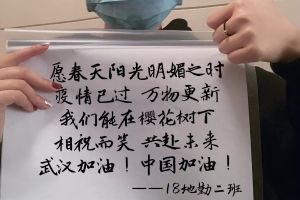 愿春天阳光明媚之时
疫情已过 万物更新
我们能在樱花树下
相视而笑 共赴未来
武汉加油！中国加油！
——18地勤二班